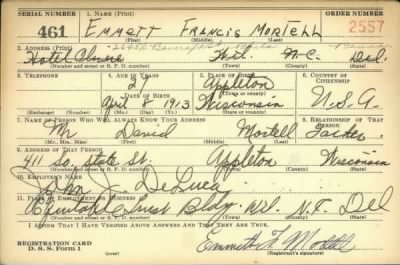 SERIAL NUMBER 1. NAME (Print) ORDER NUMBER
461 EMMETT FRANCIS MORTELL 2557
(First) (Middle) (Last)
2. ADDRESS (Print)
Hotel Wil. N.C. Del.
(Number and street or R. F. D. number) (Town) (County) (State)
3. TELEPHONE 4. AGE IN YEARS 5. PLACE OF BIRTH 6. COUNTRY OF CITIZENSHIP
27 Appleton
DATE OF BIRTH (Town or county)
April 8 1913 Wisconsin U.S.A.
(Exchange) (Number) (Mo.) (Day) (Yr.) (State or country)
7. NAME OF PERSON WHO WILL ALWAYS KNOW YOUR ADDRESS 8. RELATIONSHIP OF THAT PERSON
Mr David Mortell Father
(Mr., Mrs., Miss) (First) (Middle) (Last)
9. ADDRESS OF THAT PERSON
411 So. State St. Appleton Wisconsin
(Number and street or R. F. D. number) (Town) (County) (State)
10. EMPLOYER'S NAME
John J. DeLuca
11. PLACE OF EMPLOYMENT OR BUSINESS
Equitable Trust Bldg. Wil. Del
(Number and street or R. F. D. number) (Town) (County) (State)
I AFFIRM THAT I HAVE VERIFIED ABOVE ANSWERS AND THAT THEY ARE TRUE.
REGISTRATION CARD
D. S. S. Form 1 Emmett F. Mortell
(Registrant's signature)